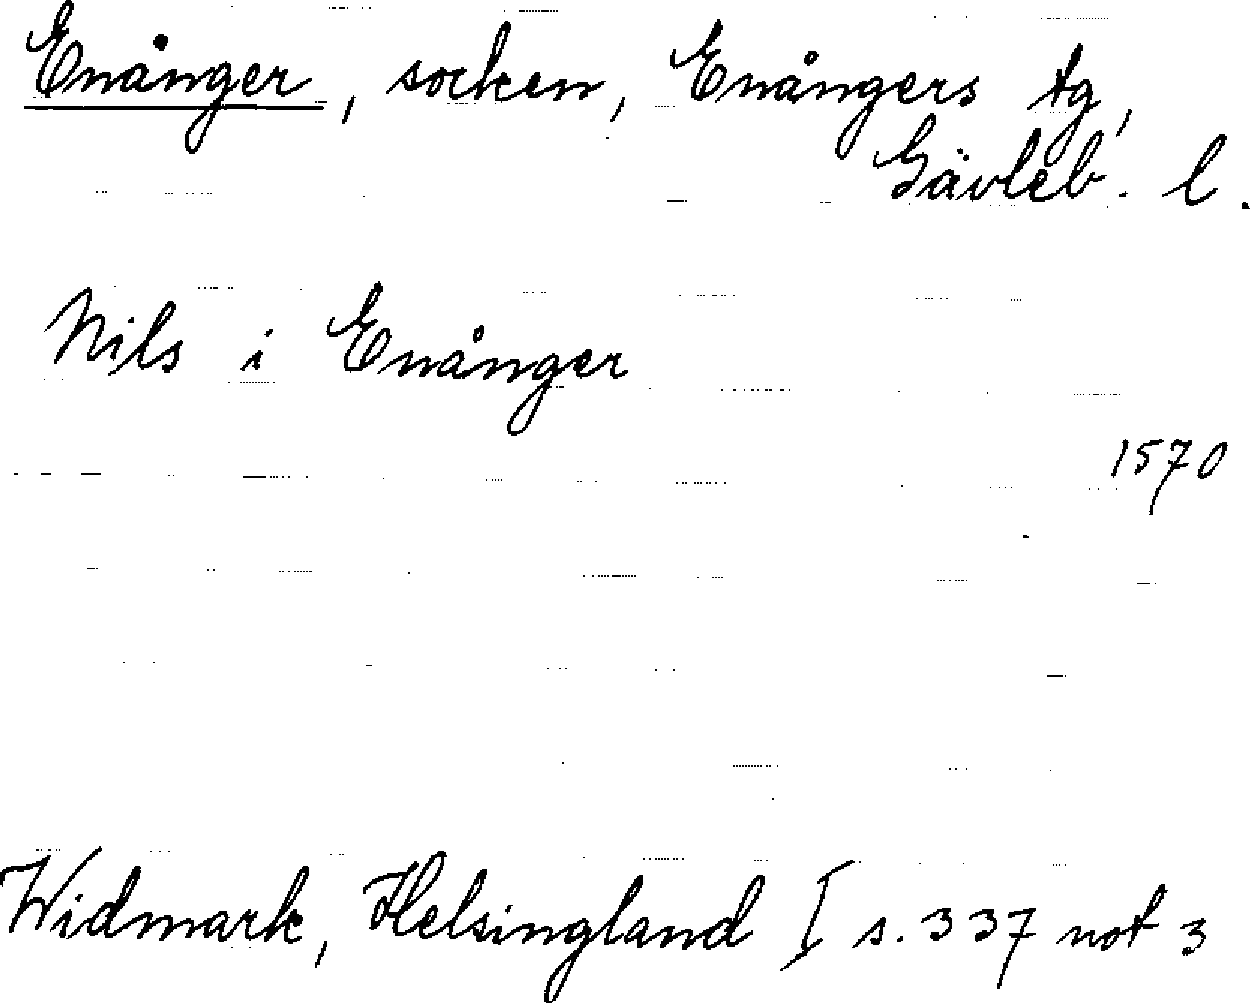 Enånger, socken, Enångers tg,
Gävleb. l.
Nils i Enånger
1570
Widmark, Helsingland I s. 337 not 3